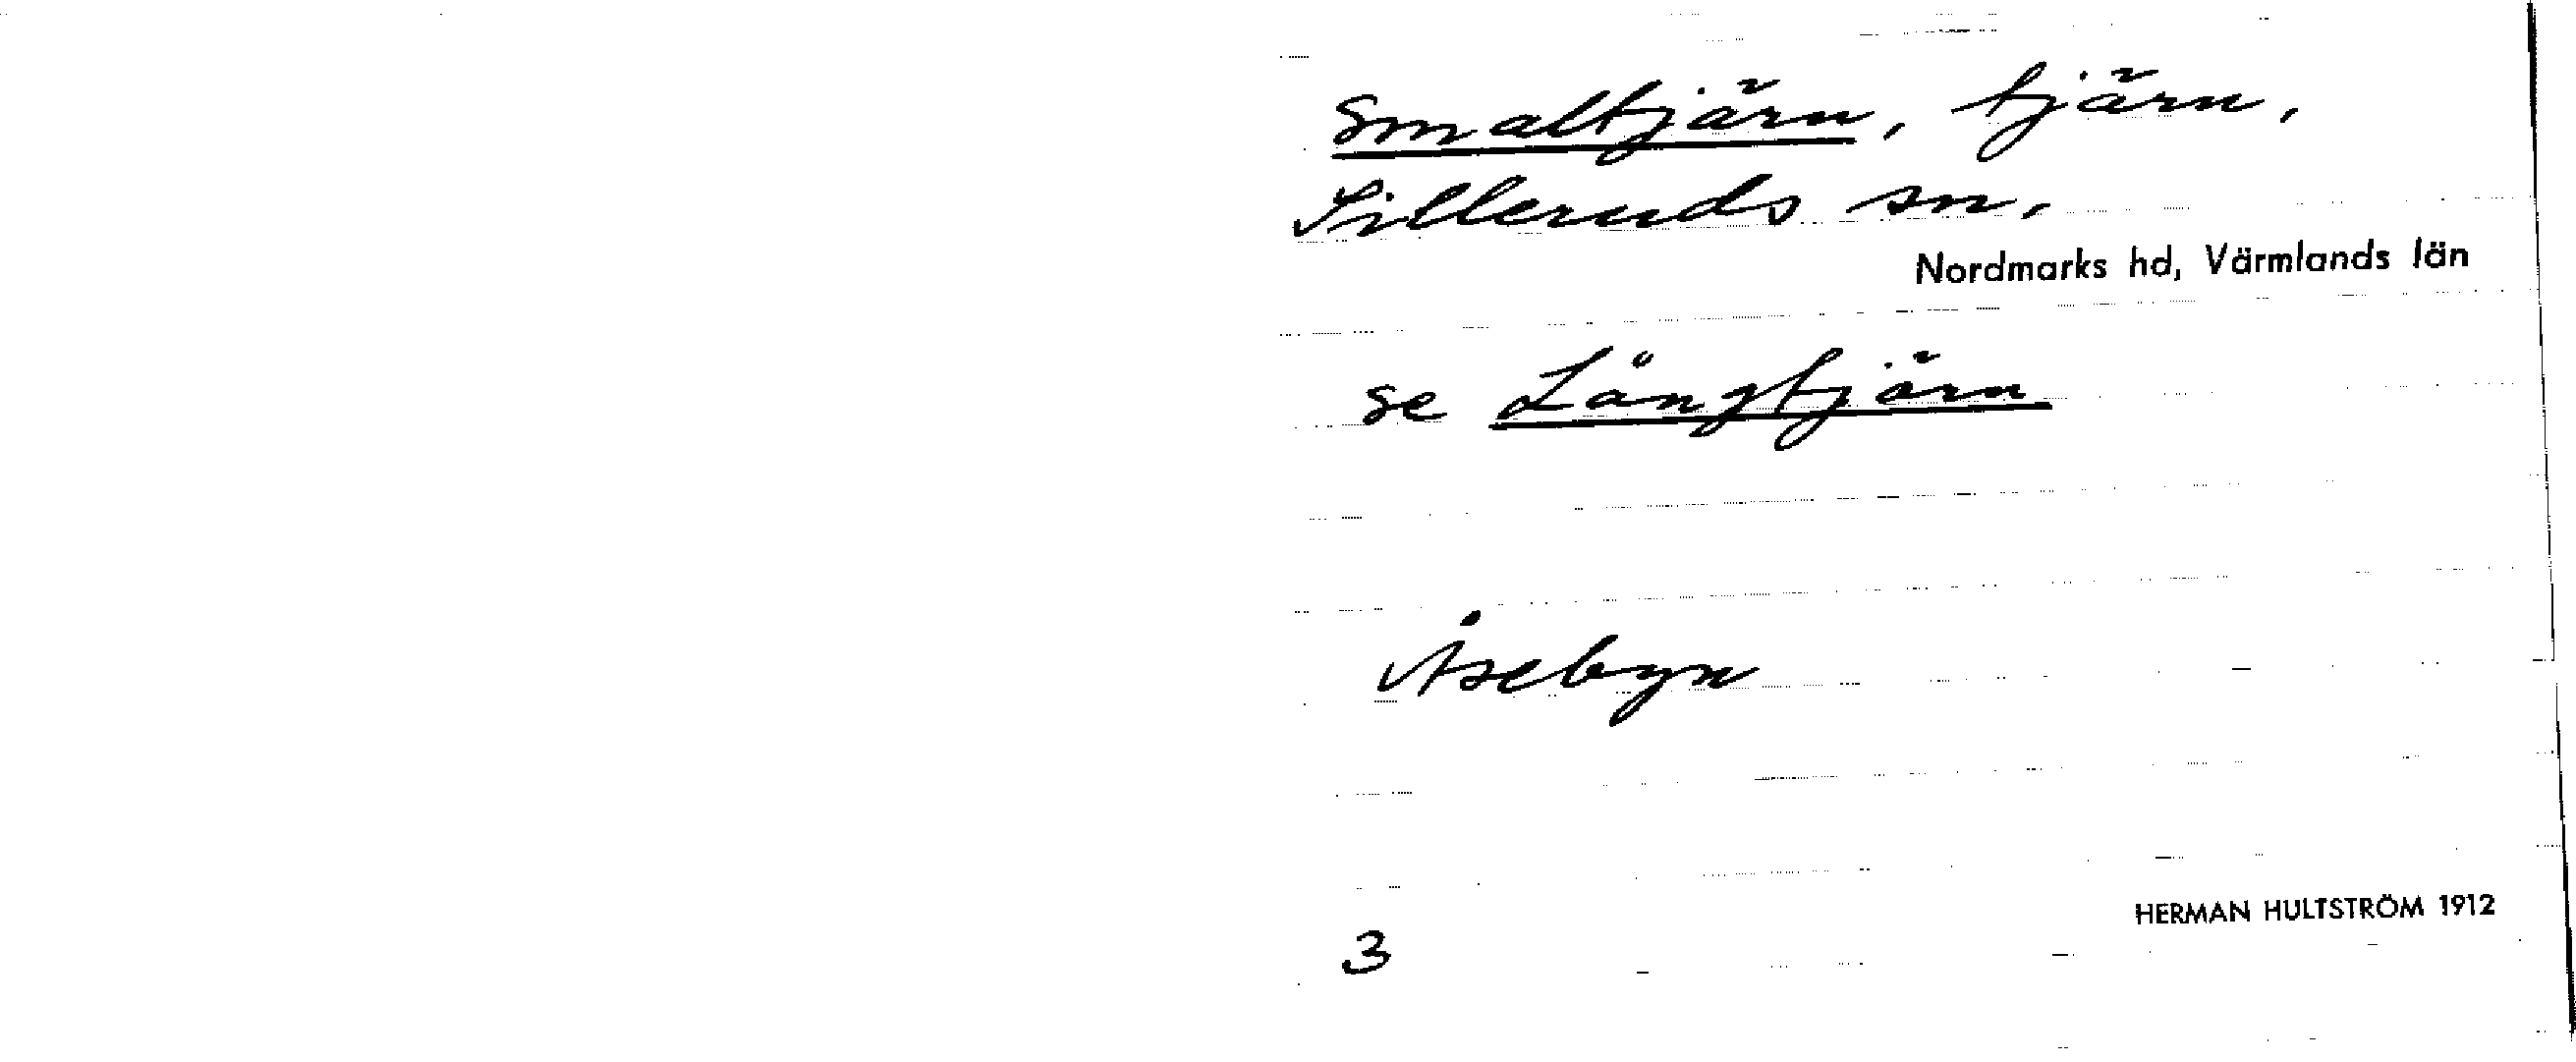 Smaltjärn, tjärn,
Silleruds sn,
Nordmarks hd, Värmlands län
se Långtjärn
Åsebyn
HERMAN HULTSTRÖM 1912
3